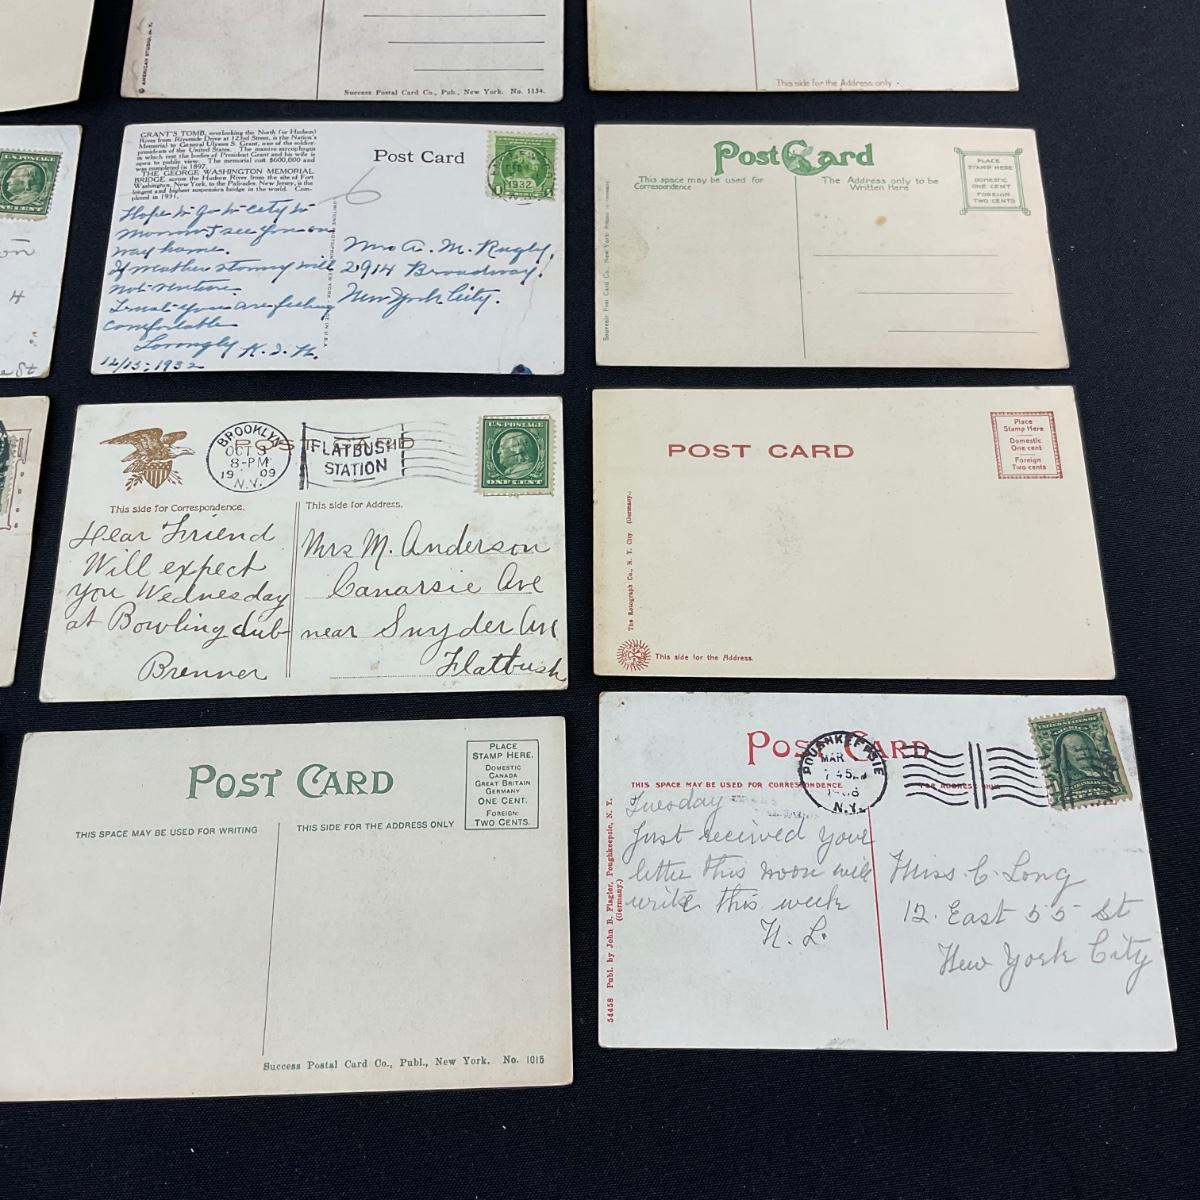 © AMERICAN STUDIO, N. Y.
Success Postal Card Co., Pub., New York. No. 1134.
This side for the Address only
U.S. POSTAGE
ONE CENT
on
H
e St
GRANT'S TOMB, overlooking the North (or Hudson)
River from Riverside Drive at 123rd Street, is the Nation's
Memorial to General Ulysses S. Grant, one of the soldier-
presidents of the United States. The massive sarcophagus
in which rest the bodies of President Grant and his wife is
open to public view. The memorial cost $600,000 and
was completed in 1897.
THE GEORGE WASHINGTON MEMORIAL
BRIDGE across the Hudson River from the site of Fort
Washington, New York, to the Palisades, New Jersey, is the
longest and highest suspension bridge in the world. Com-
pleted in 1931.
Post Card
6
1932
Hope
morrow I see you on
way home.
If weather stormy will
not venture.
Trust you are feeling
comfortable
Lovingly
12/15/1932
Mrs A. M. Rugby,
2914 Broadway.
New York City.
Post Card
This space may be used for
Correspondence
The Address only to be
Written Here
PLACE
STAMP HERE
DOMESTIC
ONE CENT
FOREIGN
TWO CENTS
Souvenir Post Card Co., New York
POST CARD
BROOKLYN
OCT 9
8-PM
19 09
N.Y.
FLATBUSH
STATION
U.S. POSTAGE
ONE CENT
This side for Correspondence.
This side for Address.
Dear Friend
Will expect
you Wednesday
at Bowling club
Brenner
Mrs M. Anderson
Canarsie Ave
near Snyder Ave
Flatbush
POST CARD
Place
Stamp Here
Domestic
One cent
Foreign
Two cents
The Rotograph Co., N. Y. City (Germany.)
This side for the Address.
POST CARD
PLACE
STAMP HERE.
DOMESTIC
CANADA
GREAT BRITAIN
GERMANY
ONE CENT.
FOREIGN:
TWO CENTS.
THIS SPACE MAY BE USED FOR WRITING
THIS SIDE FOR THE ADDRESS ONLY
Success Postal Card Co., Publ., New York. No. 1015
POST CARD
POUGHKEEPSIE
MAR
N.Y.
THIS SPACE MAY BE USED FOR CORRESPONDENCE
FOR ADDRESS
Tuesday
Just received your
letter this noon will
write this week
H. L.
Miss C. Long
12. East 55 St
New York City
54458 Publ. by John B. Flagler, Poughkeepsie, N. Y.
(Germany.)